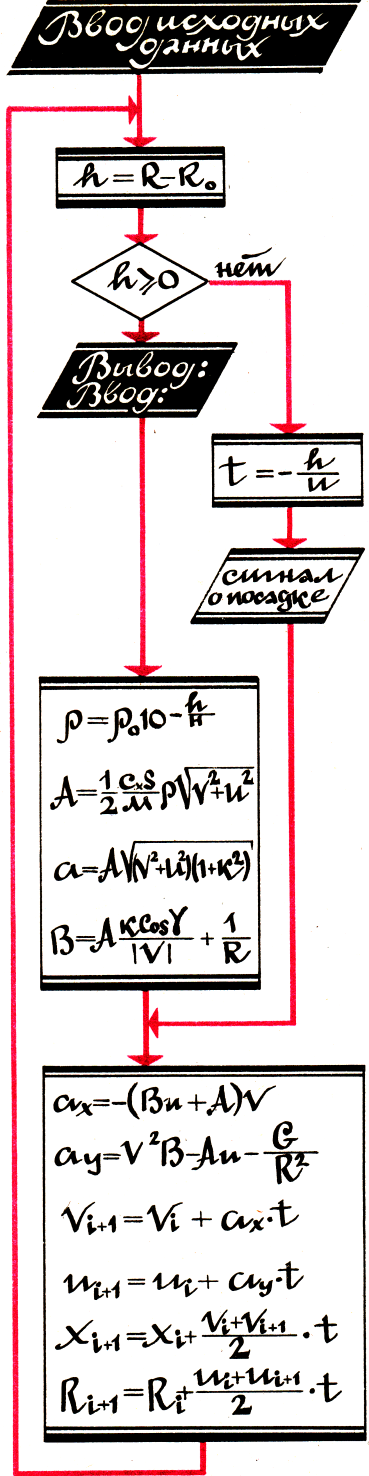 Ввод исходных
данных
h = R - R₀
h ⩾ 0
нет
Вывод:
Ввод:
t = - h/u
сигнал
о посадке
ρ = ρ₀10 - h/H
A = 1/2 CₓS/M ρ√V²+u²
a = A√(V²+u²)(1+K²)
B = A K Cos γ/|V| + 1/R
aₓ = -(Bu + A)V
ay = V²B - Au - G/R²
Vᵢ₊₁ = Vᵢ + aₓ·t
uᵢ₊₁ = uᵢ + ay·t
Xᵢ₊₁ = Xᵢ + Vᵢ+Vᵢ₊₁/2 · t
Rᵢ₊₁ = Rᵢ + uᵢ+uᵢ₊₁/2 · t